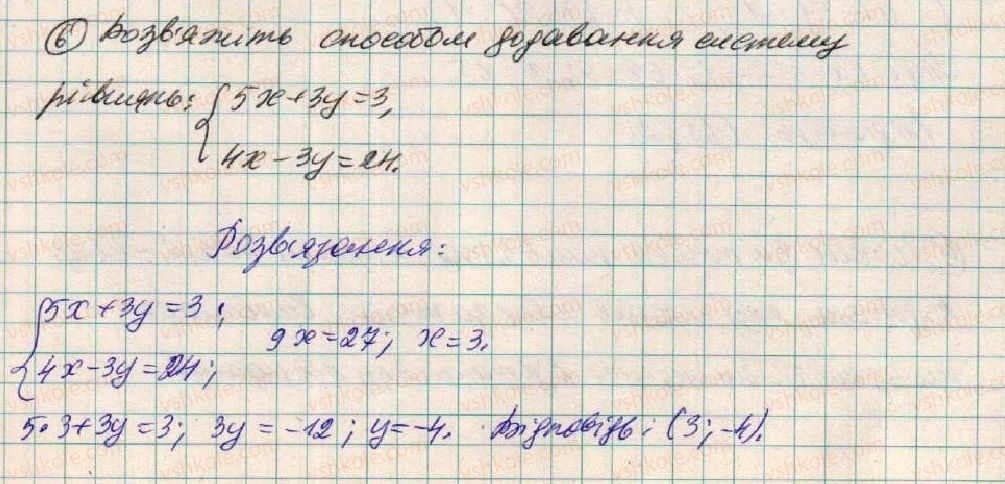 6 Розв'яжіть способом додавання систему
рівнянь: { 5x+3y=3,
4x-3y=24.
Розв'язання:
{ 5x+3y=3;
9x=27; x=3.
4x-3y=24;
5·3+3y=3; 3y=-12; y=-4. Відповідь: (3;-4).